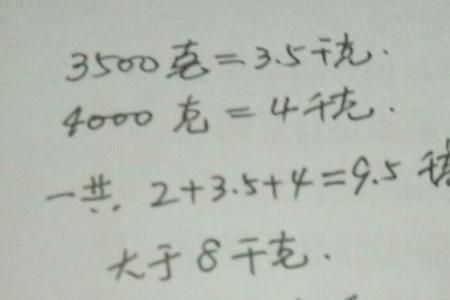 3500克=3.5千克.
4000克=4千克.
一共. 2+3.5+4=9.5千
大于8千克.